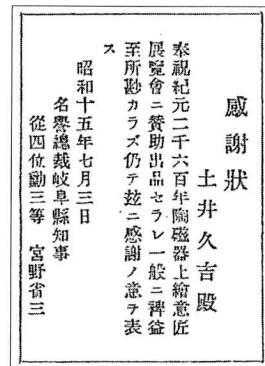 感謝狀
土井久吉殿
奉祝紀元二千六百年陶磁器上繪意匠
展覽會ニ贊助出品セラレ一般ニ裨益
至所尠カラズ仍テ玆ニ感謝ノ意ヲ表
ス
昭和十五年七月三日
名譽總裁岐阜縣知事
從四位勳三等 宮野省三